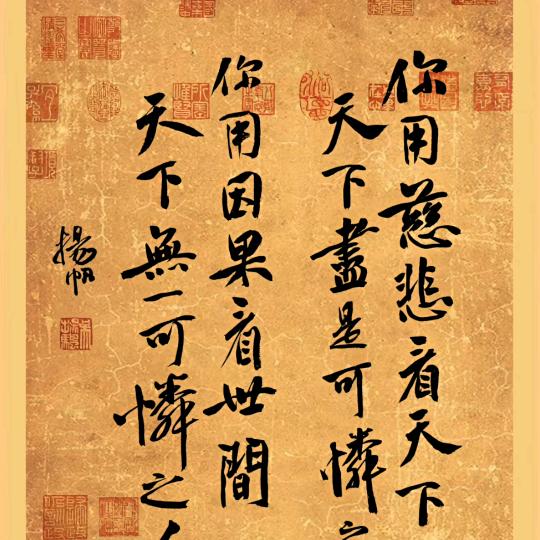 你用慈悲看天下
天下盡是可憐之
你用因果看世間
天下無一可憐之人
揚帆